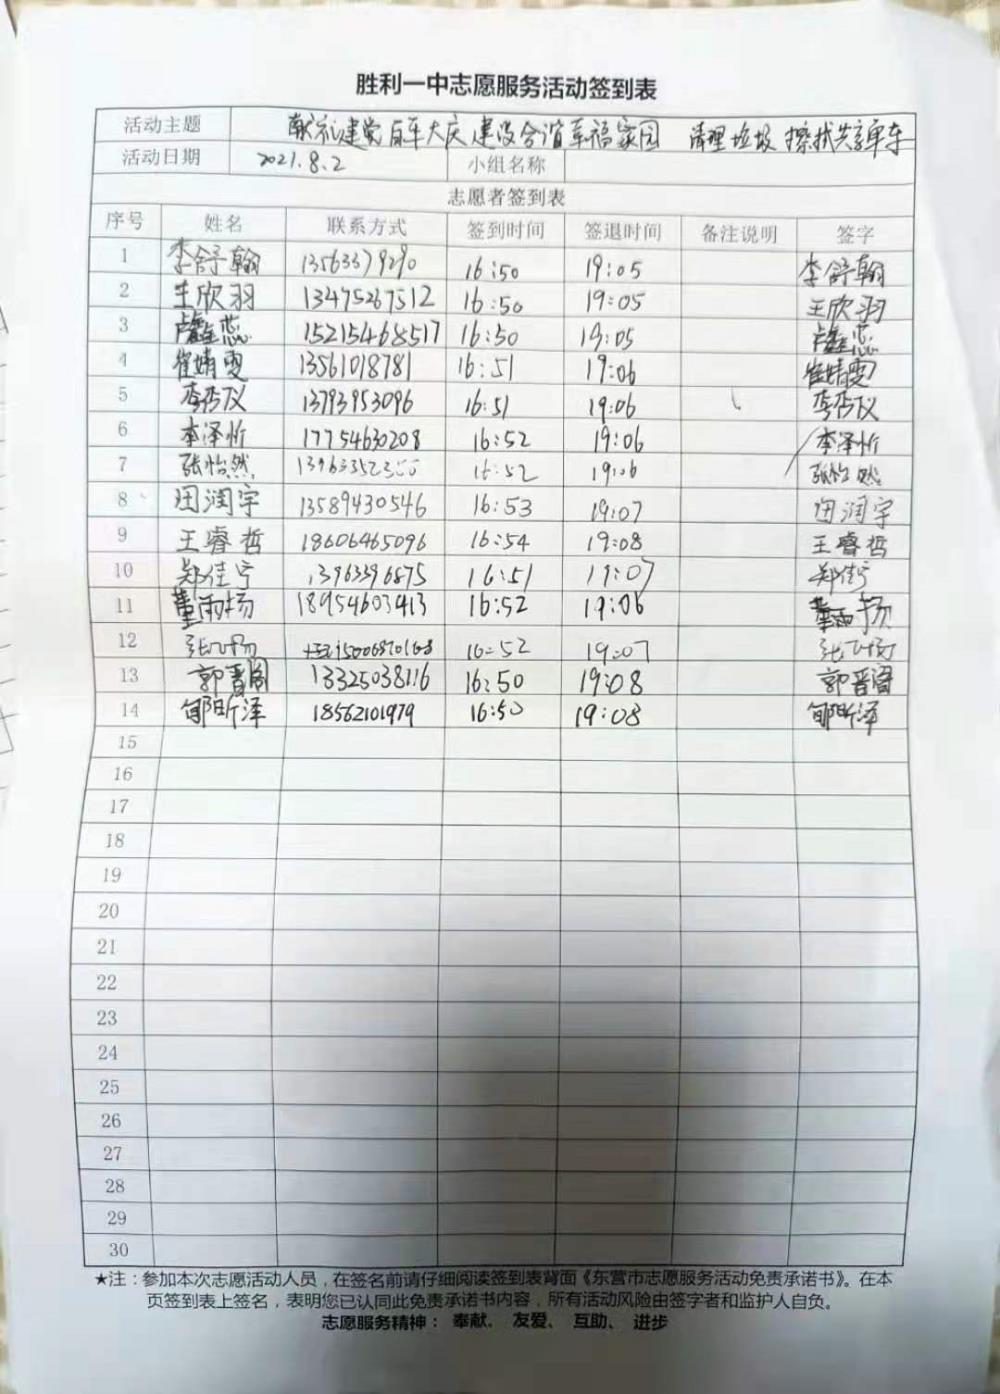 胜利一中志愿服务活动签到表
活动主题 献礼建党百年大庆 建设合谐幸福家园 清理垃圾 擦拭共享单车
活动日期 2021.8.2 小组名称
志愿者签到表
序号 姓名 联系方式 签到时间 签退时间 备注说明 签字
1 李舒翰 13563379290 16:50 19:05 李舒翰
2 王欣羽 13475267512 16:50 19:05 王欣羽
3 15215468517 16:50 19:05
4 崔婧雯 13561018781 16:51 19:06 崔婧雯
5 李杏仪 13793953096 16:51 19:06 李杏仪
6 李泽忻 17754630208 16:52 19:06 李泽忻
7 张怡然 16:52 19:06 张怡然
8 田润宇 13589430546 16:53 19:07 田润宇
9 王睿哲 18606465096 16:54 19:08 王睿哲
10 郑佳宁 13963396875 16:51 19:07 郑佳宁
11 董雨扬 18954603413 16:52 19:06 董雨扬
12 16:52 19:07
13 郭晋阁 13325038116 16:50 19:08 郭晋阁
14 郇昕泽 18562101979 16:50 19:08 郇昕泽
15
16
17
18
19
20
21
22
23
24
25
26
27
28
29
30
★注：参加本次志愿活动人员，在签名前请仔细阅读签到表背面《东营市志愿服务活动免责承诺书》。在本
页签到表上签名，表明您已认同此免责承诺书内容，所有活动风险由签字者和监护人自负。
志愿服务精神： 奉献、 友爱、 互助、 进步